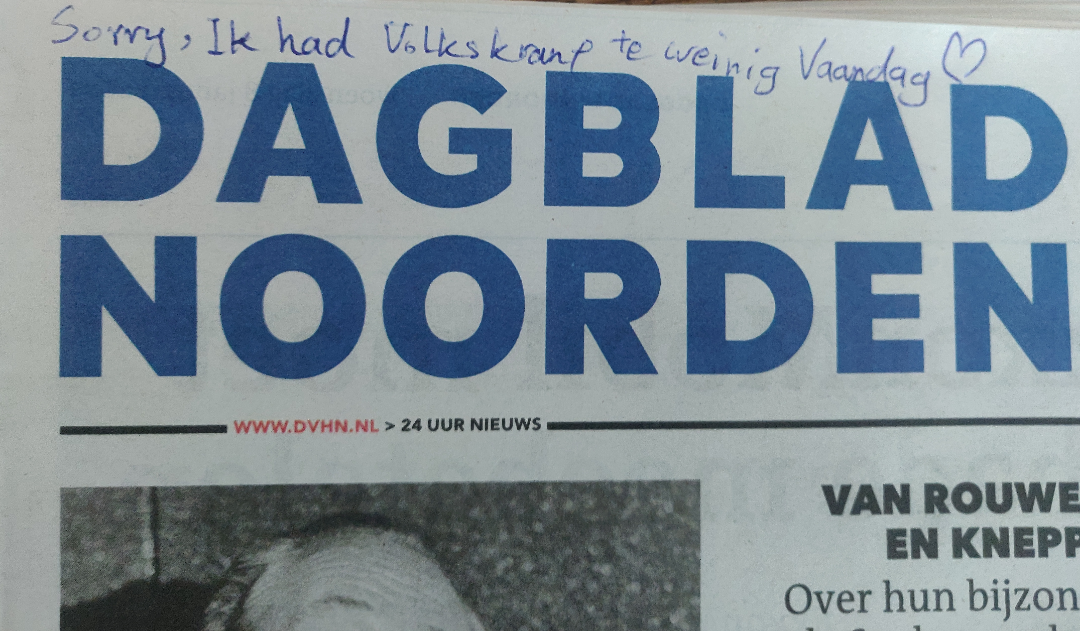 Sorry, Ik had Volkskranp te weinig Vaandag ♡
DAGBLAD
NOORDEN
WWW.DVHN.NL > 24 UUR NIEUWS
VAN ROUWE
EN KNEPP
Over hun bijzon